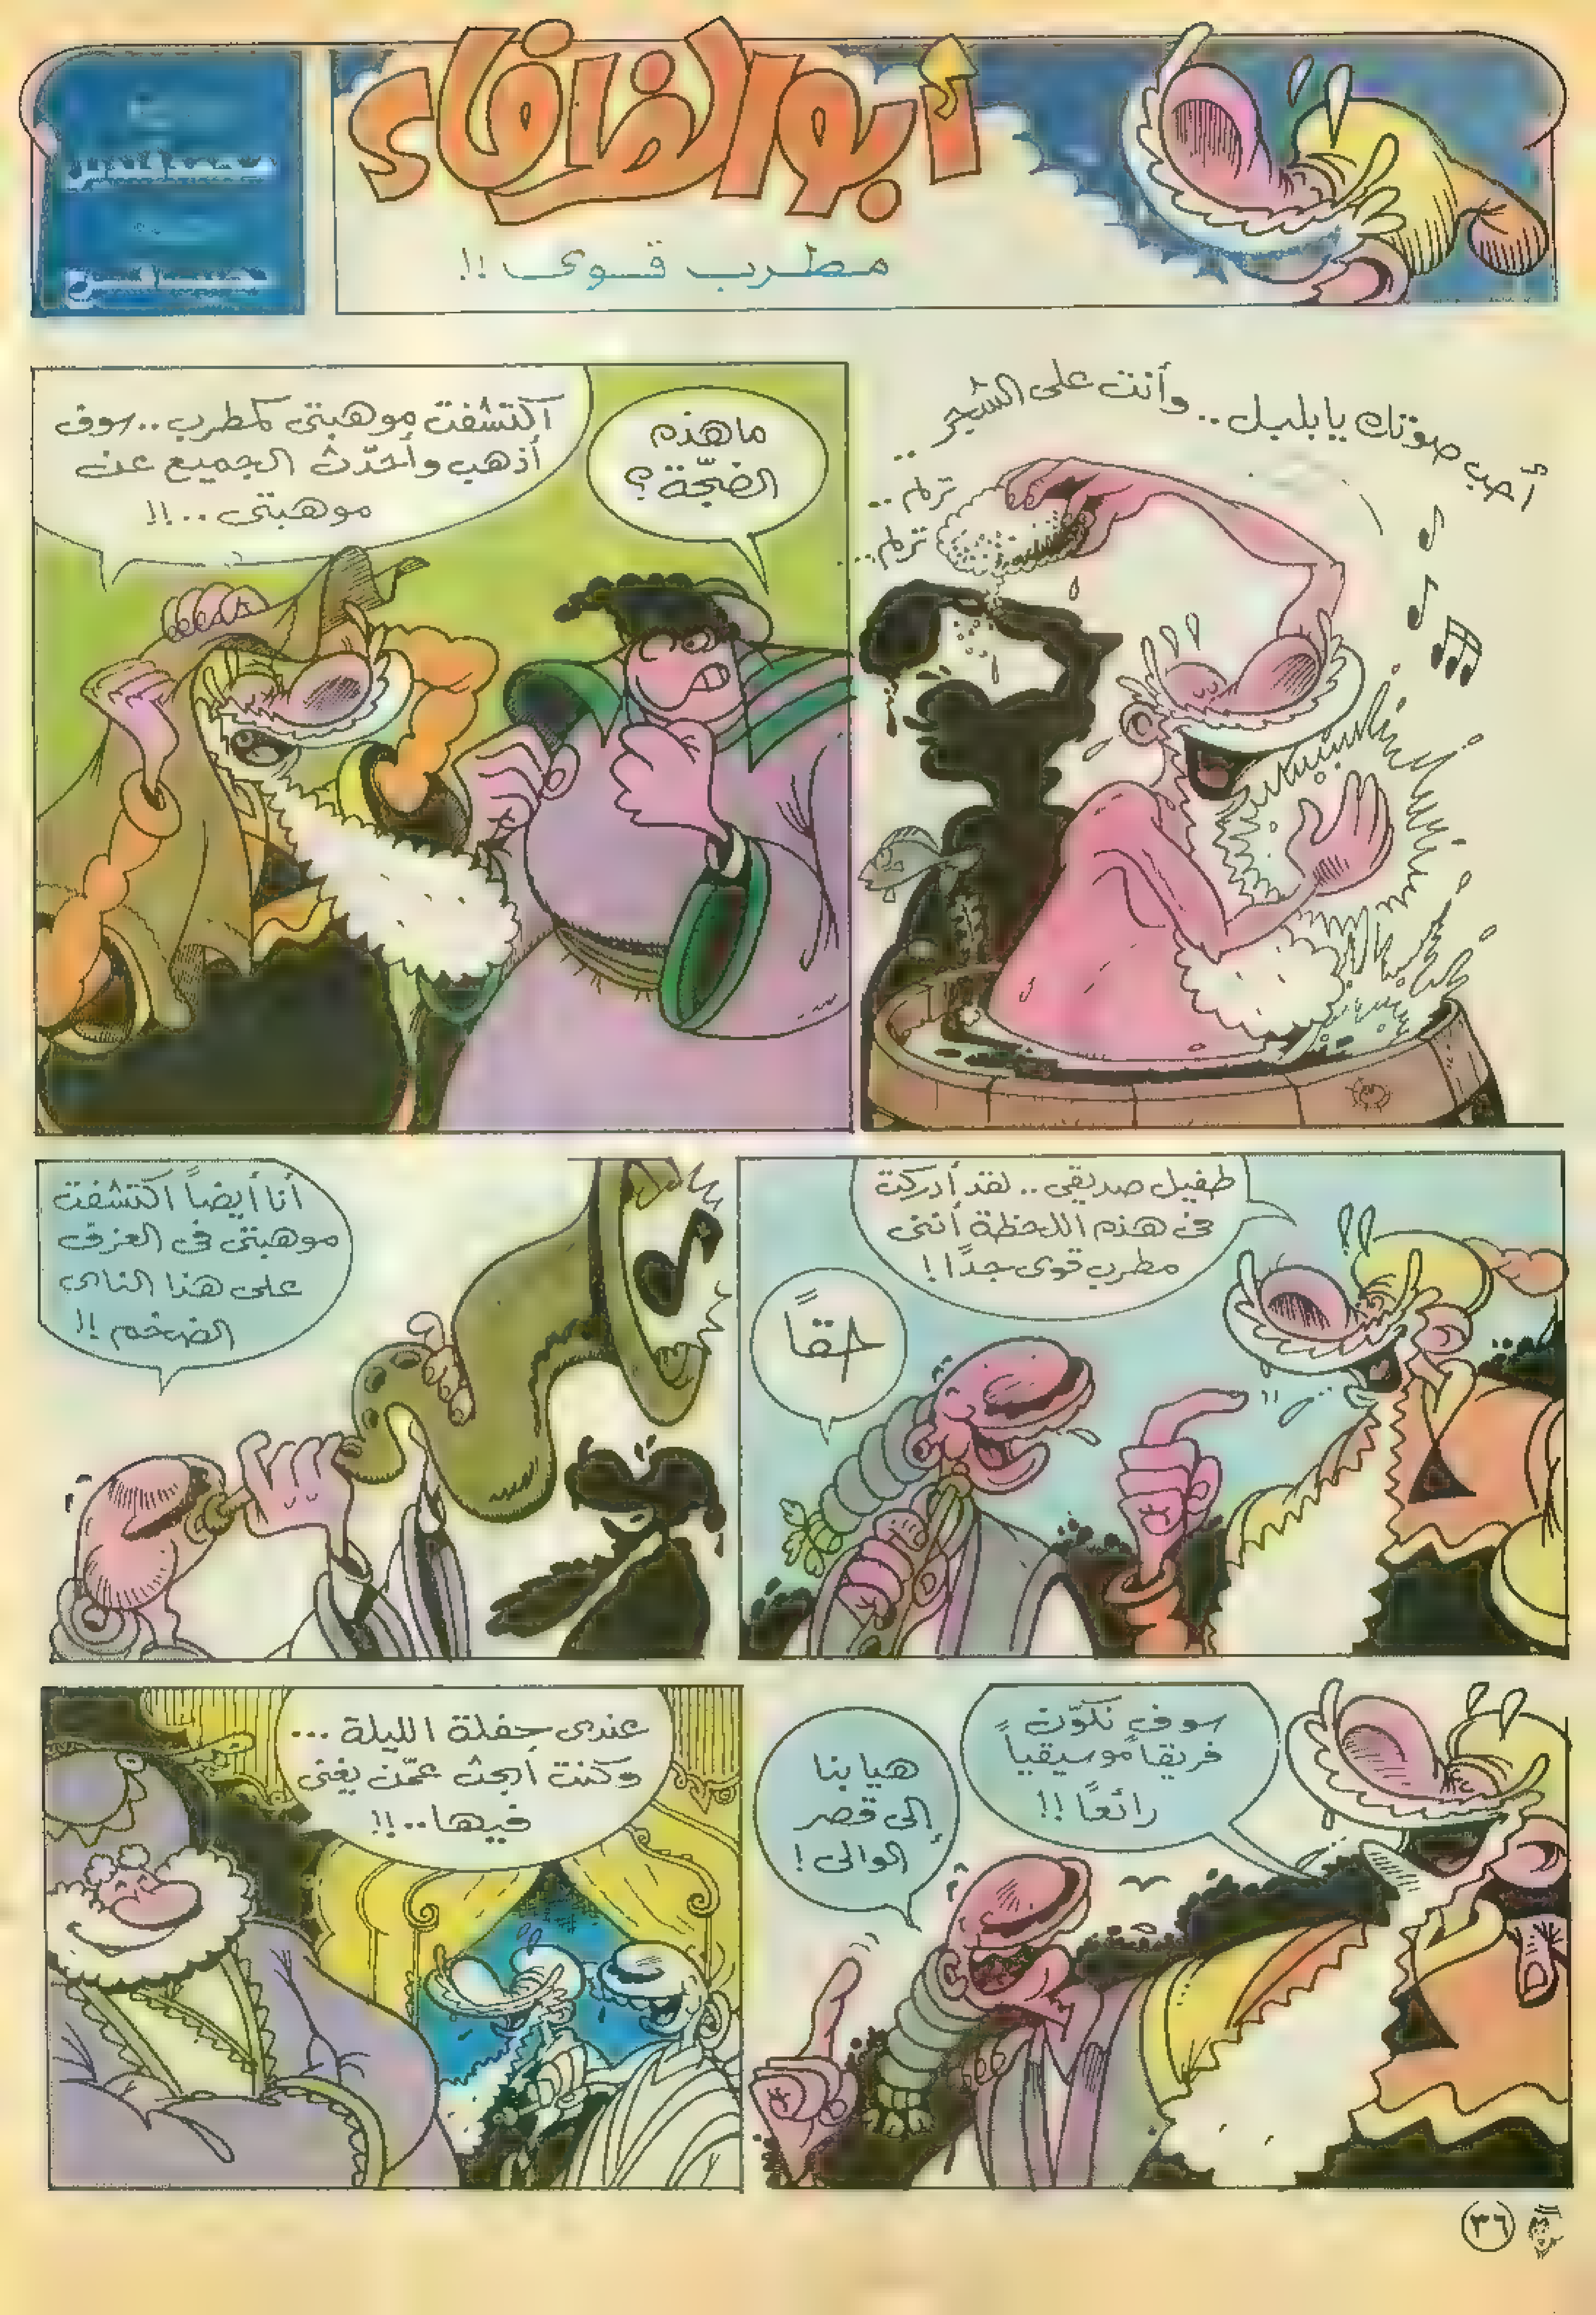 أبو الظرفاء
مطرب قوى !!
أحب صوتك يا بلبل .. وأنت على الشجر ..
ترلم ..
ترلم ...
ما هذه
الضجّة ؟
اكتشفت موهبتى كمطرب .. سوف
أذهب وأحدّث الجميع عن
موهبتى .. !!
طفيل صديقى .. لقد أدركت
فى هذه اللحظة أننى
مطرب قوى جدًا !
حقًا
أنا أيضاً اكتشفت
موهبتى فى العزف
على هذا الناى
الضخم !!
سوف نكوّن
فريقاً موسيقياً
رائعًا !!
هيا بنا
إلى قصر
الوالى !
عندى حفلة الليلة ...
وكنت أبحث عمّن يغنى
فيها .. !!
٣٦